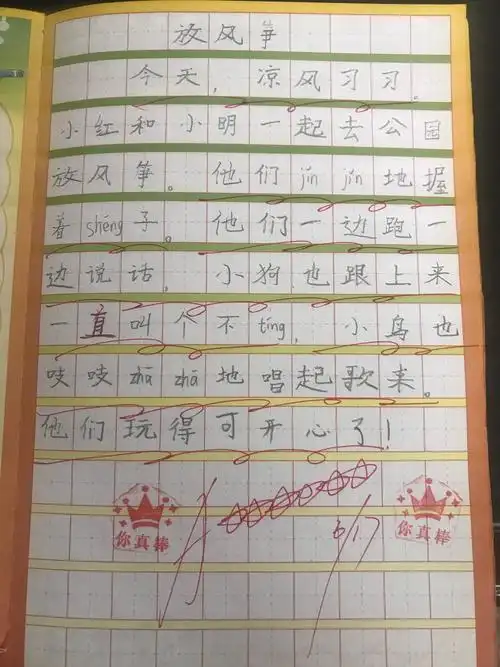 放风筝
今天，凉风习习。
小红和小明一起去公园
放风筝。他们jǐn jǐn地握
着shéng子。他们一边跑一
边说话，小狗也跟上来
一直叫个不tíng，小鸟也
吱吱zhā zhā地唱起歌来。
他们玩得可开心了！
你真棒
你真棒
6/17